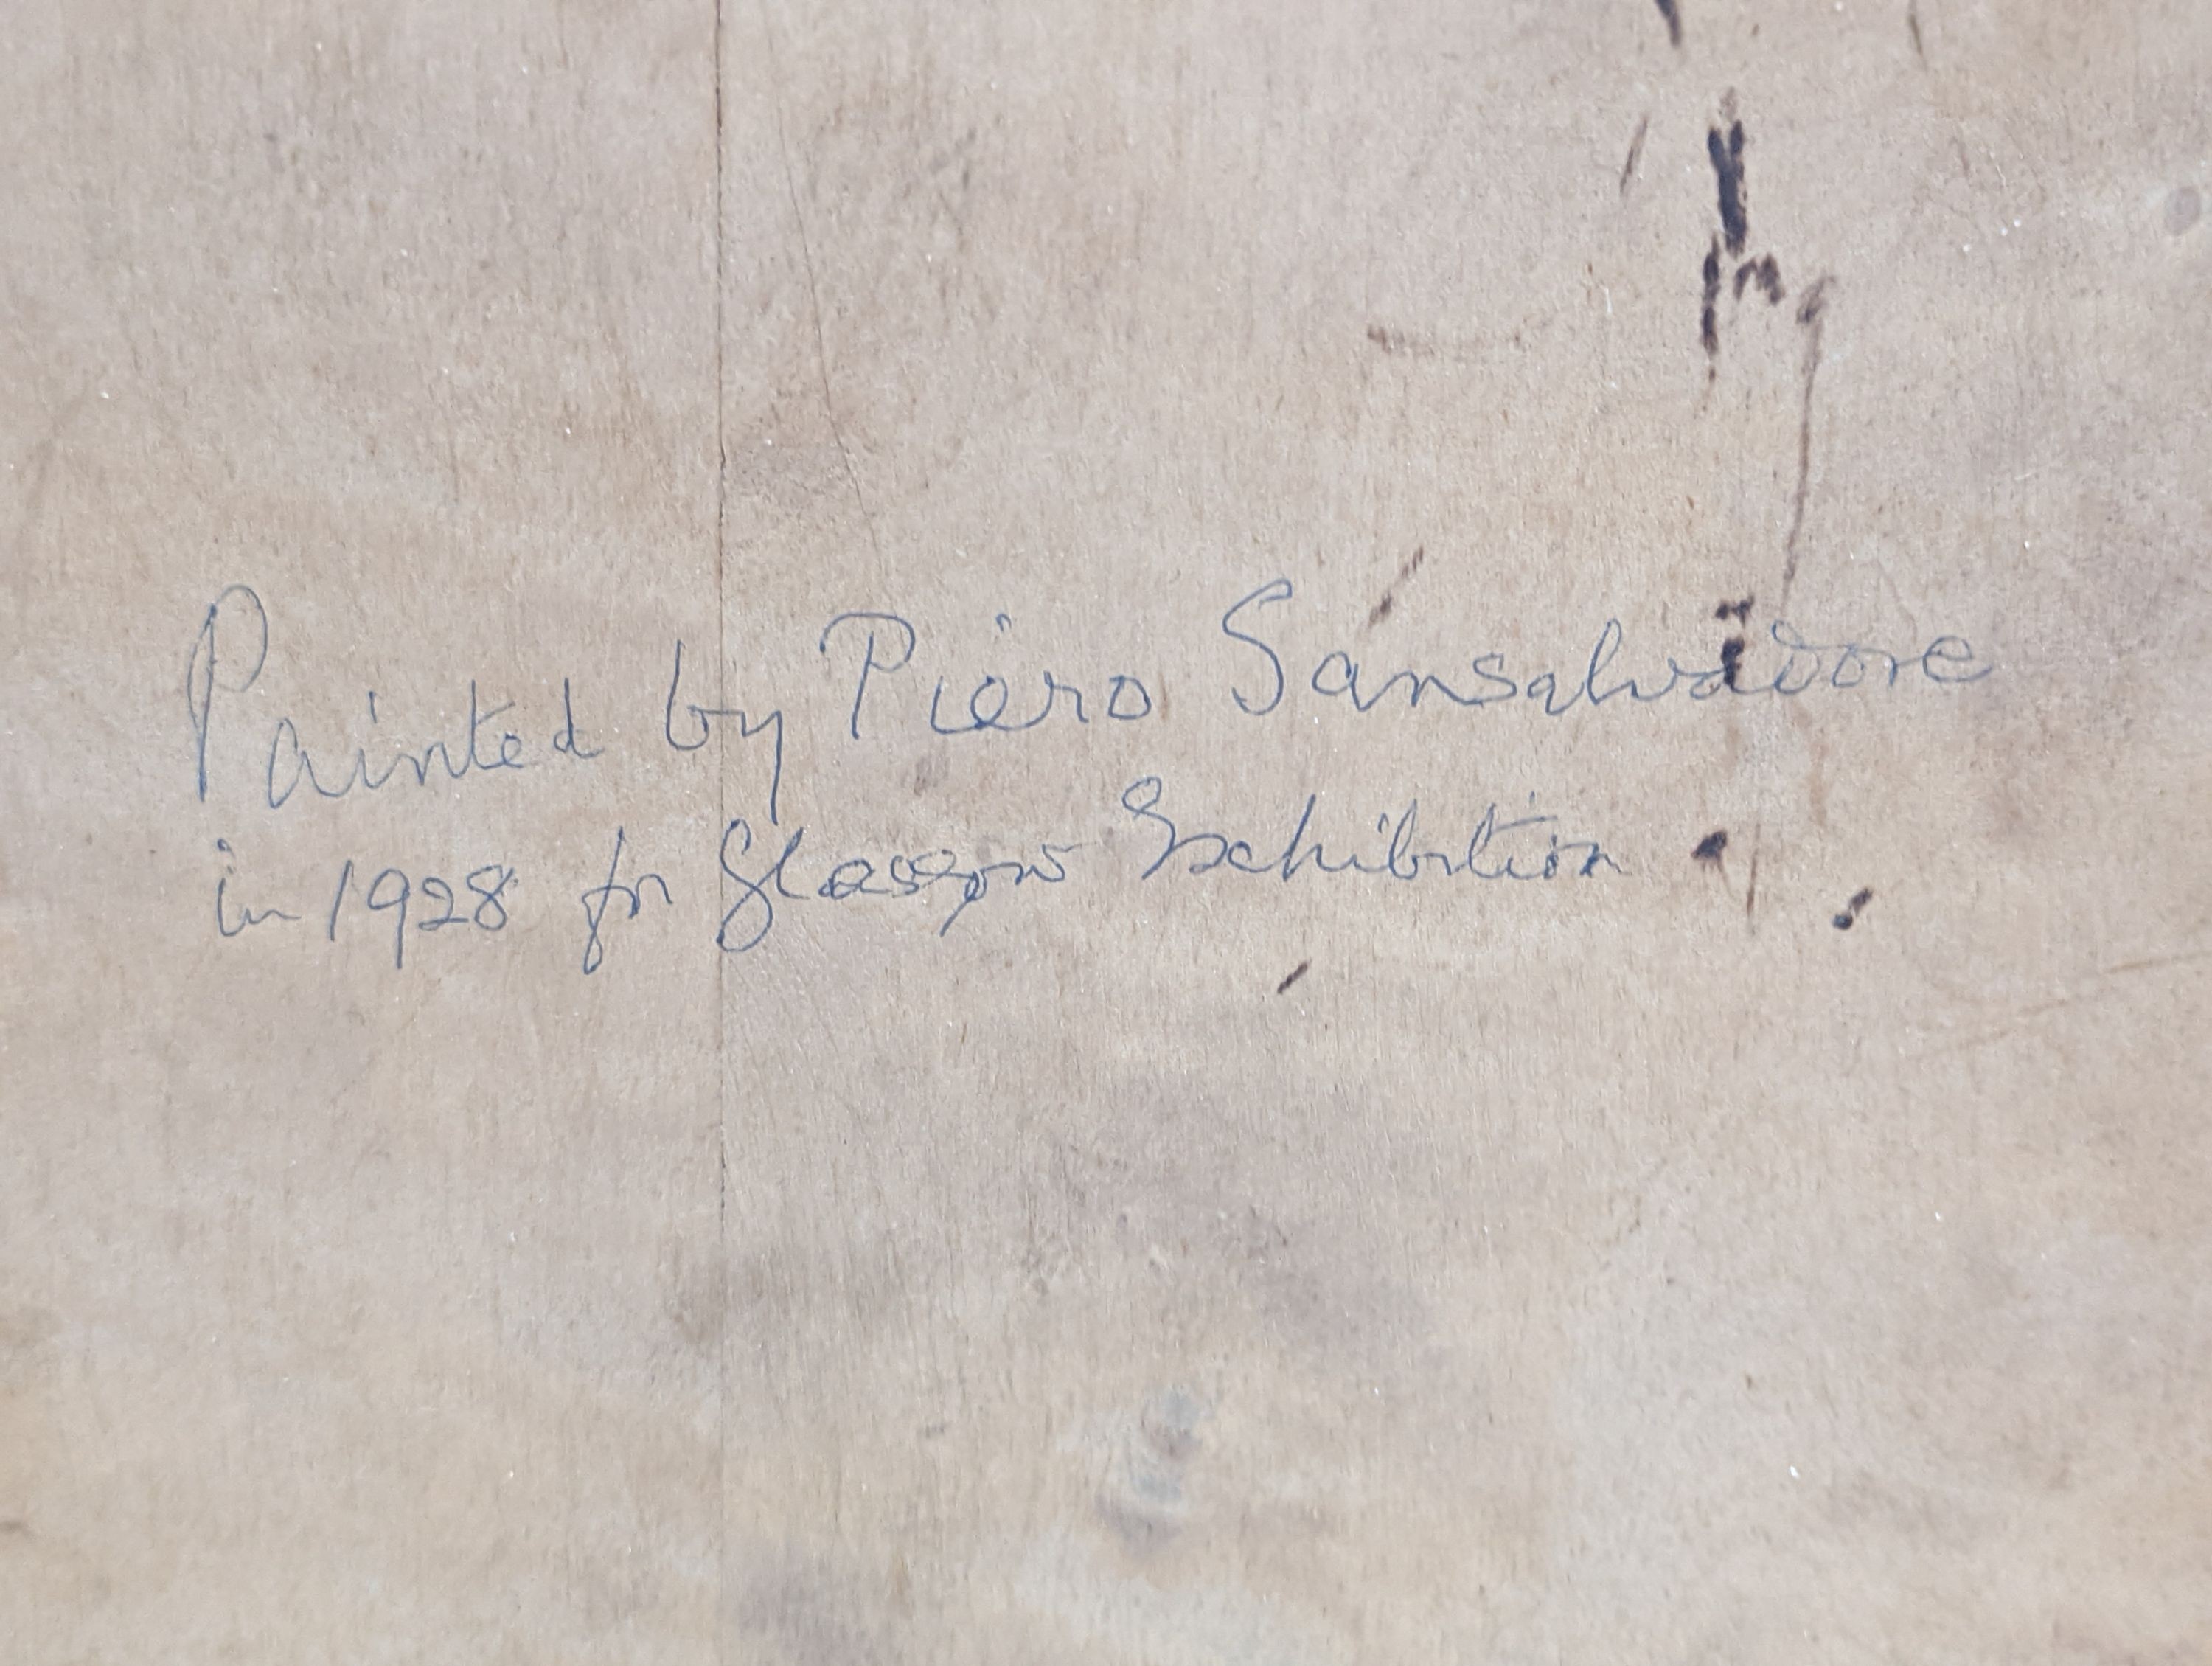 Painted by Piero Sansalvadore
in 1928 for Glasgow Exhibition